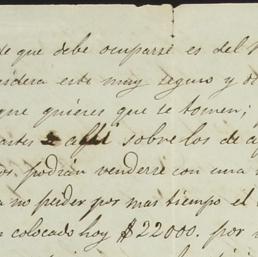 de que debe ocuparse es del
sidera este muy seguro y
que quieres que te tomen;
antes allí sobre los de a
os. podrán venderse con una
a no perder por mas tiempo el
n colocado hoy $22000. por